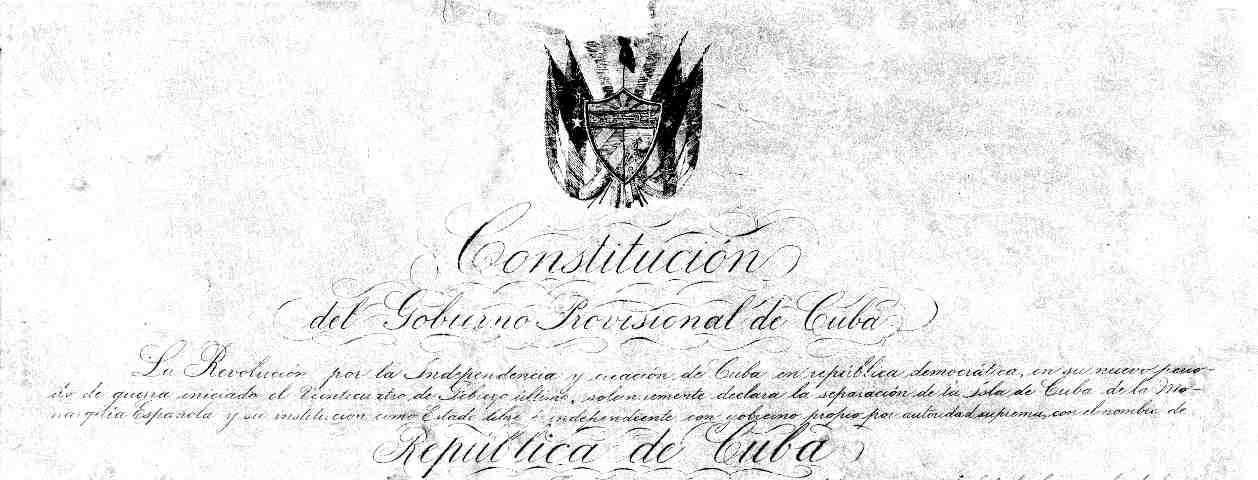 Constitución
del Gobierno Provisional de Cuba
La Revolución por la Independencia y creación de Cuba en república democrática, en su nuevo perio-
do de guerra iniciado el Veinticuatro de Febrero último, solemnemente declara la separación de la Isla de Cuba de la Mo-
narquía Española y su institución como Estado libre é independiente con gobierno propio por autoridad suprema, con el nombre de
República de Cuba